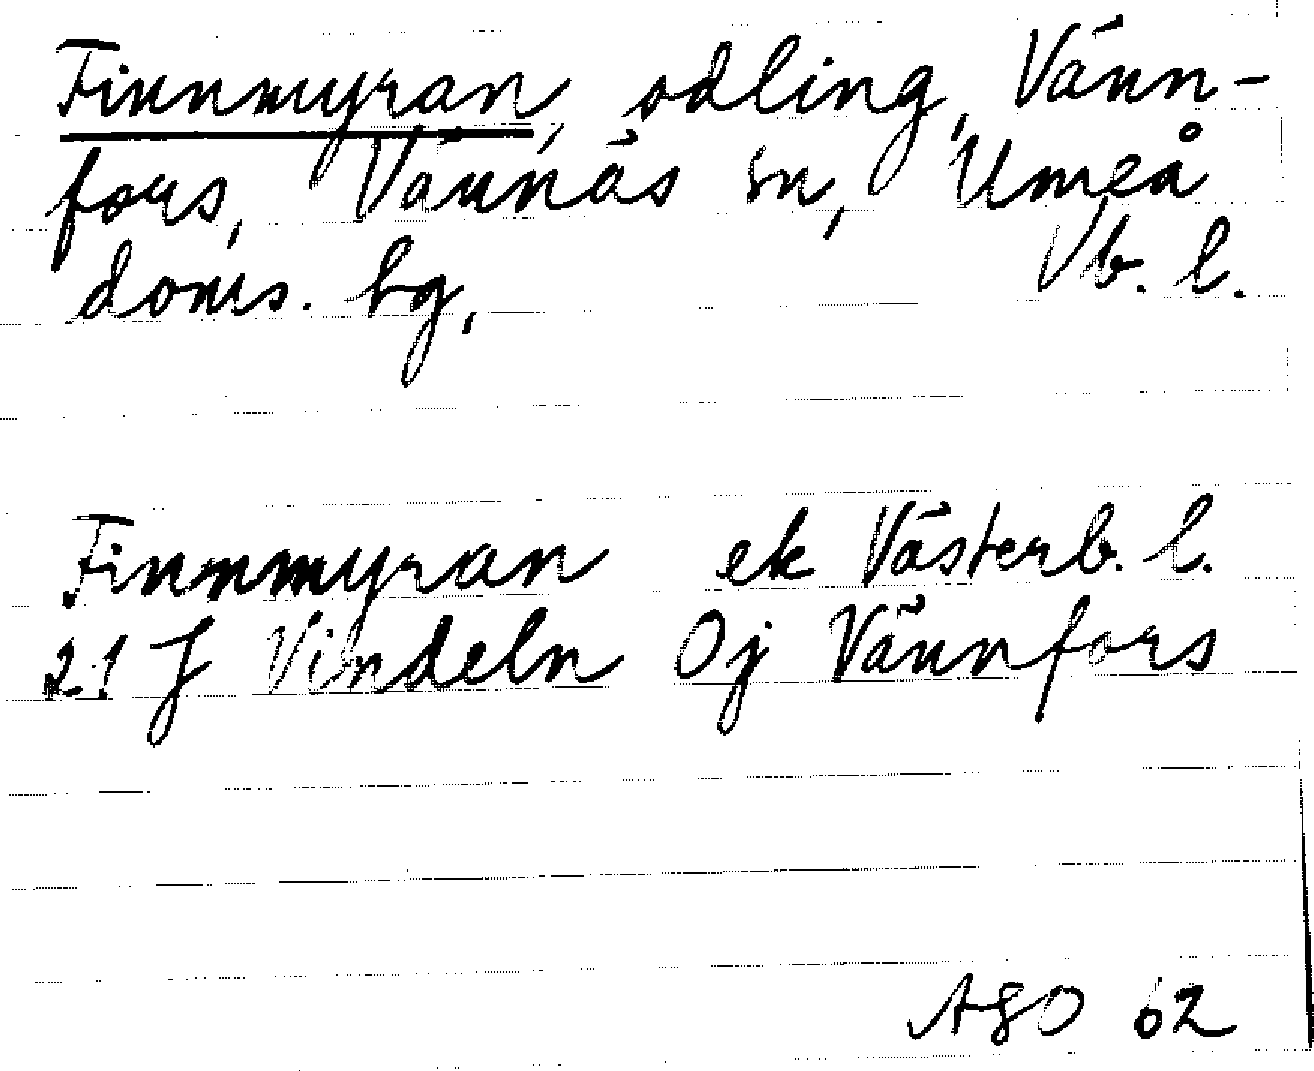 Finnmyran, odling, Vänn-
fors, Vännäs sn, Umeå
doms. hg, Vb. l.
Finnmyran ek Västerb. l.
21 J Vindeln Oj Vännfors
AGO 62